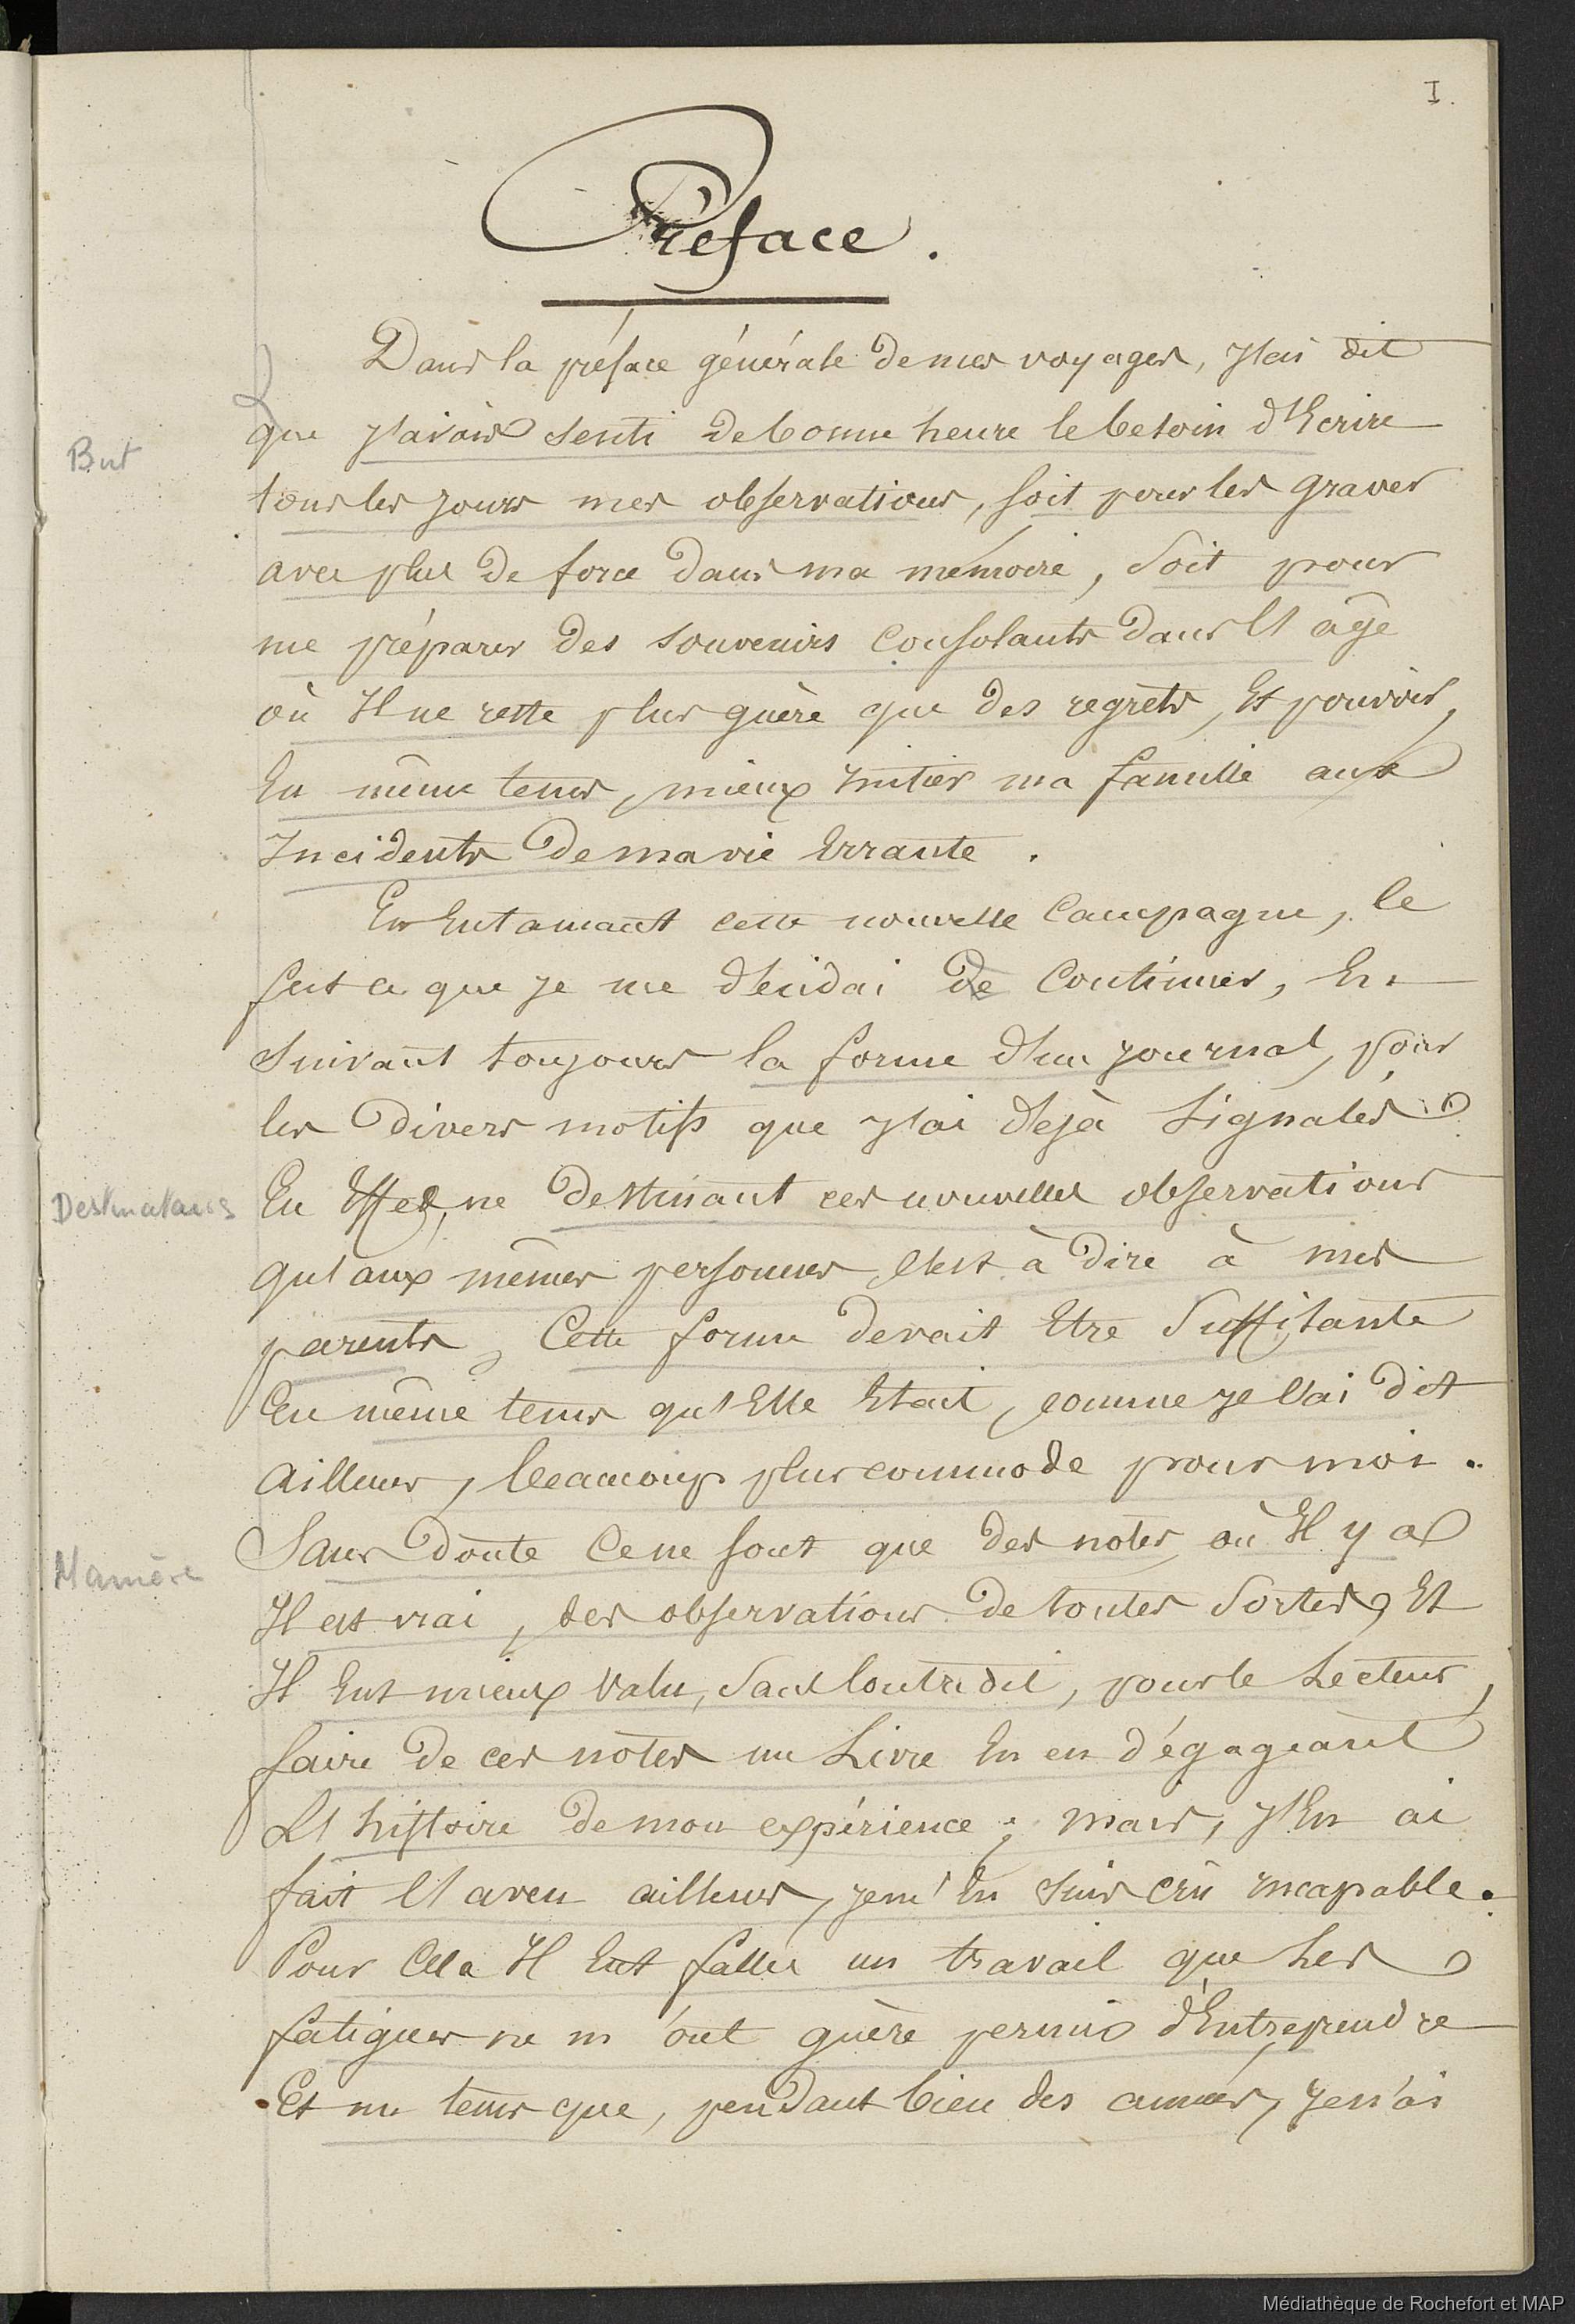 I.
Préface.
Dans la préface générale de mes voyages, j'ai dit
que j'avais senti de bonne heure le besoin d'Ecrire
But
tous les jours mes observations, soit pour les graver
avec plus de force dans ma mémoire, soit pour
me préparer des souvenirs consolants dans l'âge
où Il ne reste plus guère que des regrèts, Et pouvoir,
En même tems, mieux Initier ma famille aux
Incidents de ma vie Errante.
En Entamant cette nouvelle Campagne, ce
fut ce que je me décidai de Continuer, En
suivant toujours la forme d'un journal, pour
les divers motifs que j'ai déjà signalés
Destinataires
En Effet, ne destinant ces nouvelles observations
qu'aux mêmes personnes, c'est à dire à mes
parents, Cette forme devait Etre suffisante
En même tems qu'Elle Etait, comme je l'ai dit
ailleurs, beaucoup plus commode pour moi.
Sans doute ce ne sont que des notes où Il y a
Manière
Il est vrai, des observations de toutes sortes, Et
Il Eut mieux valu, sans contredit, pour le Lecteur,
faire de ces notes un Livre En en dégageant
L'histoire de mon expérience; mais, j'En ai
fait l'aveu ailleurs, je m'En suis crû incapable.
Pour Cela Il Eut fallu un travail que Les
fatigues ne m'ont guère permis d'Entreprendre
Et un tems que, pendant bien des années, je n'ai
Médiathèque de Rochefort et MAP